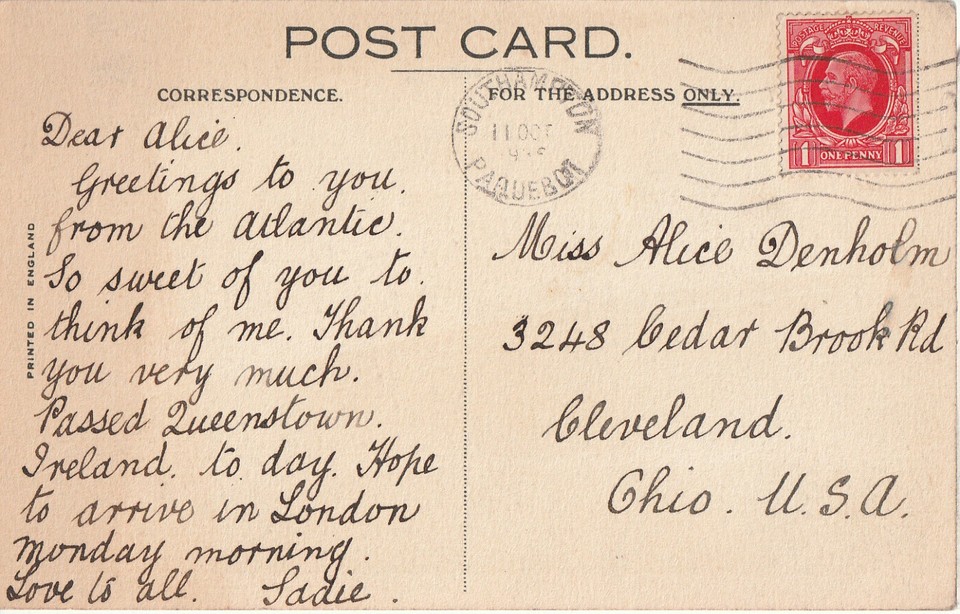 POST CARD.
CORRESPONDENCE.
FOR THE ADDRESS ONLY.
Dear Alice.
Greetings to you.
from the Atlantic.
So sweet of you to.
think of me. Thank
you very much.
Passed Queenstown.
Ireland. to day. Hope
to arrive in London
monday morning.
Love to all. Sadie.
PRINTED IN ENGLAND
SOUTHAMPTON
11 OCT
PAQUEBOT
POSTAGE REVENUE
1 ONE PENNY 1
Miss Alice Denholm
3248 Cedar Brook Rd
Cleveland.
Ohio. U.S.A.